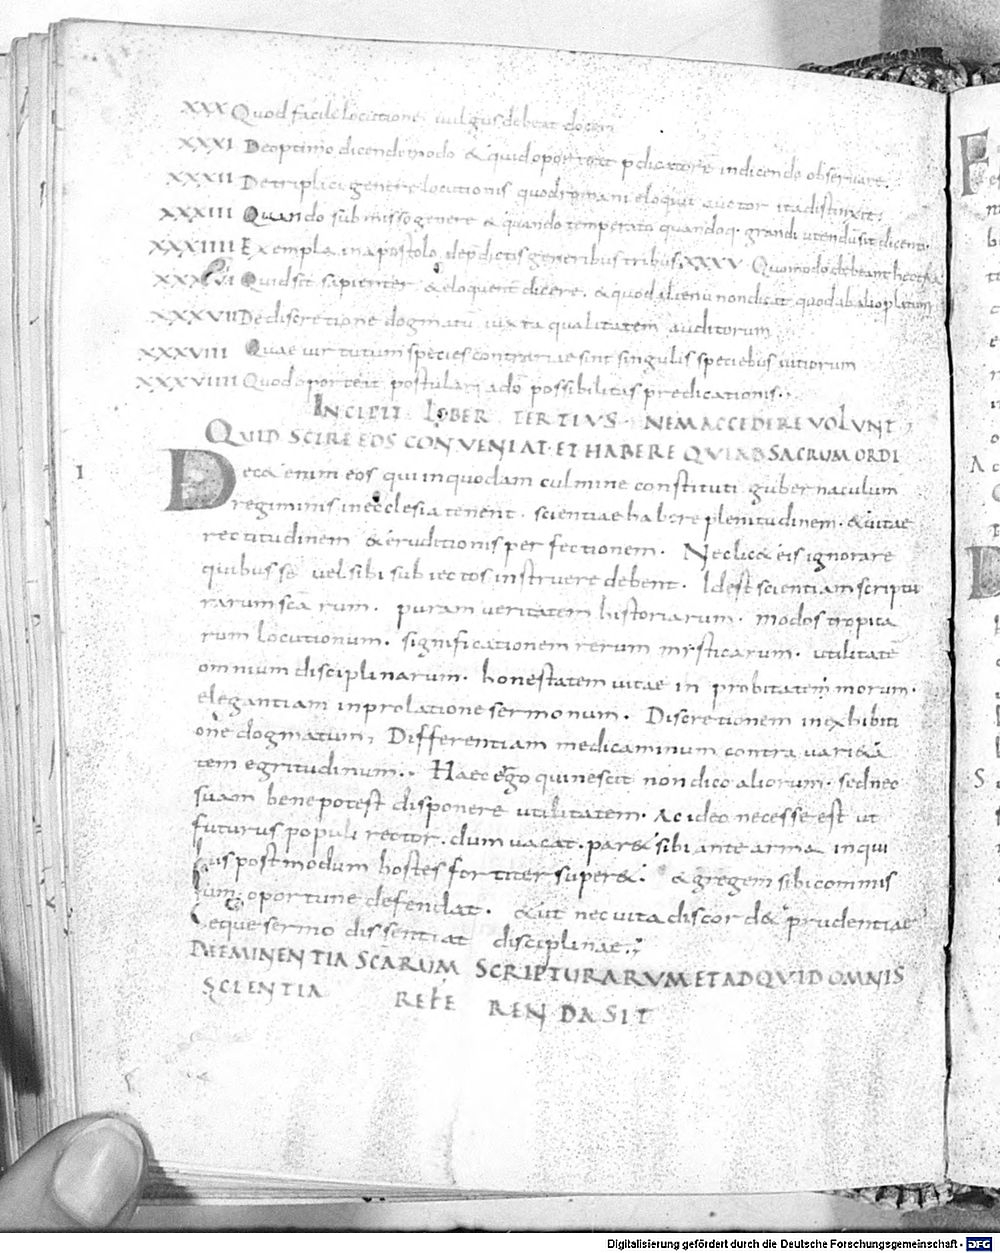 XXX Quod facile locutione uulgus debeat doceri
XXXI De optimo dicendi modo & quid oporteat p̄dicatorē in dicendo obseruare.
XXXII De triplici genere locutionis quod romani eloquii auctor ita distinxit;
XXXIII Quando submisso genere & quando temperato quandoq· grandi utendū sit dicenti·
XXXIIII Exempla in apostolo dep̄dictis generibus tribus; XXXV Quomodo debeant
XXXVI Quid sit sapienter & eloquent dicere. & quod alienū non dicat quod ab alio
XXXVII De discretione dogmatū iuxta qualitatem auditorum
XXXVIII Quae uirtutum species contrariae sint singulis speciebus uitiorum
XXXVIIII Quod oporteat postulari a dō possibilitas predicationis;
INCIPIT LIBER TERTIVS· NEM ACCEDERE VOLVNT;
QUID SCIRE EOS CONVENIAT· ET HABERE QVI AB SACRUM ORDI
1 Dec& enim eos qui in quodam culmine constituti gubernaculum
regiminis in ecclesia tenent. scientiae habere plenitudinem. & uitae
rectitudinem & eruditionis perfectionem. Nec lic& eis ignorare
quibus se uel sibi subiectos instruere debent. Id est scientiam scriptu
rarum scārum. puram ueritatem historiarum. modos tropica
rum locutionum. significationem rerum mysticarum. utilitatē
omnium disciplinarum. honestatem uitae in probitate morum.
elegantiam in prolatione sermonum. Discretionem in exhibiti
one dogmatum; Differentiam medicaminum contra uari&a
tem egritudinum.. Haec ergo qui nescit non dico aliorum. sed nec
suam bene potest disponere utilitatem. Ac ideo necesse est ut
futurus populi rector. dum uacat. par& sibi ante arma in qui
bus postmodum hostes fortiter super&. & gregem sibi commis
sum oportune defendat. & ut nec uita discord& prudentiae
neque sermo dissentiat disciplinae;
DE EMINENTIA SCARUM SCRIPTURARVM ET AD QVID OMNIS
SCIENTIA REFERENDA SIT
Digitalisierung gefördert durch die Deutsche Forschungsgemeinschaft - DFG